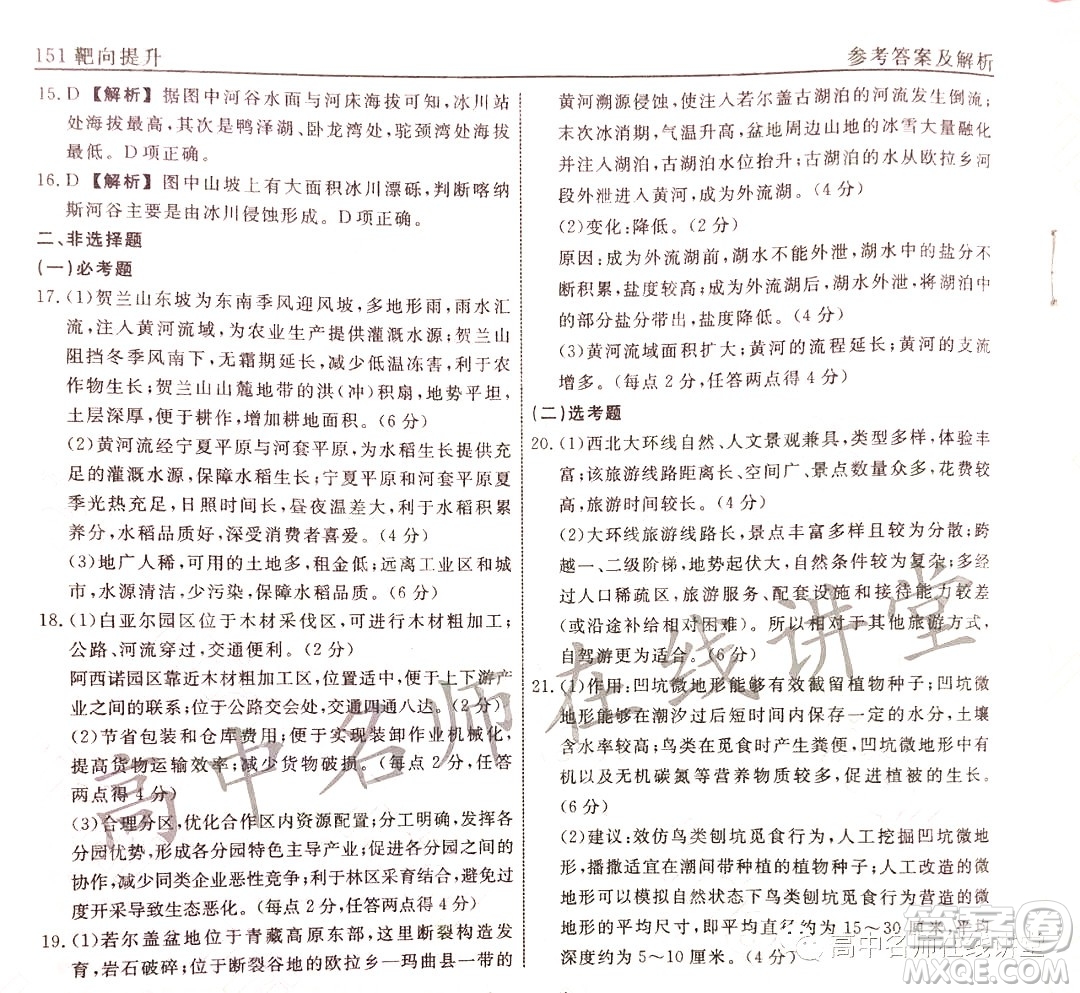 151 靶向提升
参考答案及解析
15. D 【解析】据图中河谷水面与河床海拔可知,冰川站
处海拔最高,其次是鸭泽湖、卧龙湾处,驼颈湾处海拔
最低。D项正确。
16. D 【解析】图中山坡上有大面积冰川漂砾,判断喀纳
斯河谷主要是由冰川侵蚀形成。D项正确。
二、非选择题
(一)必考题
17. (1)贺兰山东坡为东南季风迎风坡,多地形雨,雨水汇
流,注入黄河流域,为农业生产提供灌溉水源;贺兰山
阻挡冬季风南下,无霜期延长,减少低温冻害,利于农
作物生长;贺兰山山麓地带的洪(冲)积扇,地势平坦,
土层深厚,便于耕作,增加耕地面积。(6分)
(2)黄河流经宁夏平原与河套平原,为水稻生长提供充
足的灌溉水源,保障水稻生长;宁夏平原与河套平原夏
季光热充足,日照时间长,昼夜温差大,利于水稻积累
养分,水稻品质好,深受消费者喜爱。(4分)
(3)地广人稀,可用的土地多,租金低;远离工业区和城
市,水源清洁,少污染,保障水稻品质。(6分)
18. (1)白亚尔园区位于木材采伐区,可进行木材粗加工;
公路、河流穿过,交通便利。(2分)
阿西诺园区靠近木材粗加工区,位置适中,便于上下游产
业之间的联系;位于公路交会处,交通四通八达。(2分)
(2)节省包装和仓库费用;便于实现装卸作业机械化,
提高货物运输效率;减少货物破损。(每点2分,任答
两点得4分)
(3)合理分区,优化合作区内资源配置;分工明确,发挥各
分园优势,形成各分园特色主导产业;促进各分园之间的
协作,减少同类企业恶性竞争;利于林区采育结合,避免过
度开采导致生态恶化。(每点2分,任答两点得4分)
19. (1)若尔盖盆地位于青藏高原东部,这里断裂构造发
育,岩石破碎;位于断裂谷地的欧拉乡—玛曲县一带的
黄河溯源侵蚀,切入若尔盖古湖泊的河流发生倒流;
末次冰消期,气温升高,盆地周边山地的冰雪大量融化
并注入湖泊,古湖泊水位抬升;古湖泊的水从欧拉乡河
段外泄进入黄河,成为外流湖。(4分)
(2)变化:降低。(2分)
原因:成为外流湖前,湖水不能外泄,湖水中的盐分不
断积累,盐度较高;成为外流湖后,湖水外泄,将湖水中
的部分盐分带出,盐度降低。(4分)
(3)黄河流域面积扩大;黄河的流程延长;黄河的支流
增多。(每点2分,任答两点得4分)
(二)选考题
20. (1)西北大环线自然、人文景观兼具,类型多样,体验丰
富;该旅游线路距离长、空间广、景点数量众多,花费较
高,旅游时间较长。(4分)
(2)大环线旅游线路长,景点丰富多样且较为分散;跨
越一、二级阶梯,地势起伏大,自然条件较为复杂;多经
过人口稀疏区,旅游服务、配套设施和接待能力不足
(或沿途补给相对困难)。所以相对于其他旅游方式,
自驾游更为适合。(6分)
21. (1)作用:凹坑微地形能够有效截留植物种子;凹坑微
地形能够在潮汐过后短时间内保存一定的水分,土壤
含水率较高;鸟类在觅食时产生粪便,凹坑微地形有机
与无机碳氮等营养物质较多,利于植被的生长。
(6分)
(2)建议:效仿鸟类刨坑觅食行为,人工挖掘凹坑微地
形,播撒适宜在潮间带种植的植物种子;人工改造的微
地形可以模拟自然状态下鸟类刨坑觅食行为营造的微
地形的平均尺寸,即平均直径大约为15~30厘米,平均
深度约为5~10厘米。(4分)
高中名师在线讲堂
高中名师在线讲堂
答案圈
MXQE.COM